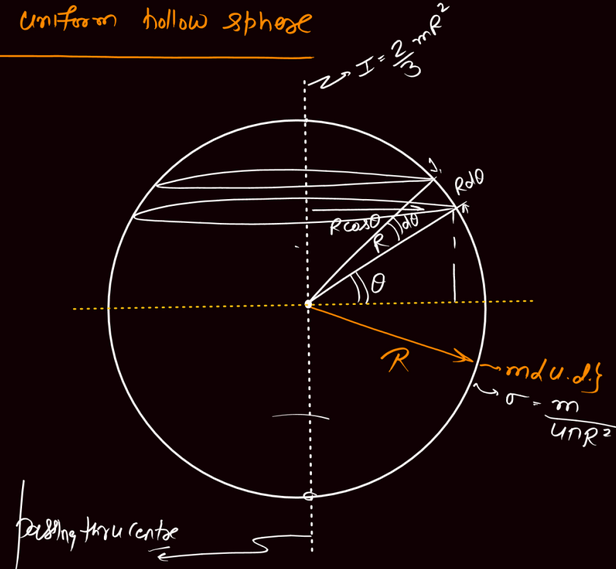 uniform hollow sphere
I = 2/3 mR²
Rdθ
Rcosθ
dθ
R
θ
R
m{u.d.}
σ = m/4πR²
passing thru centre